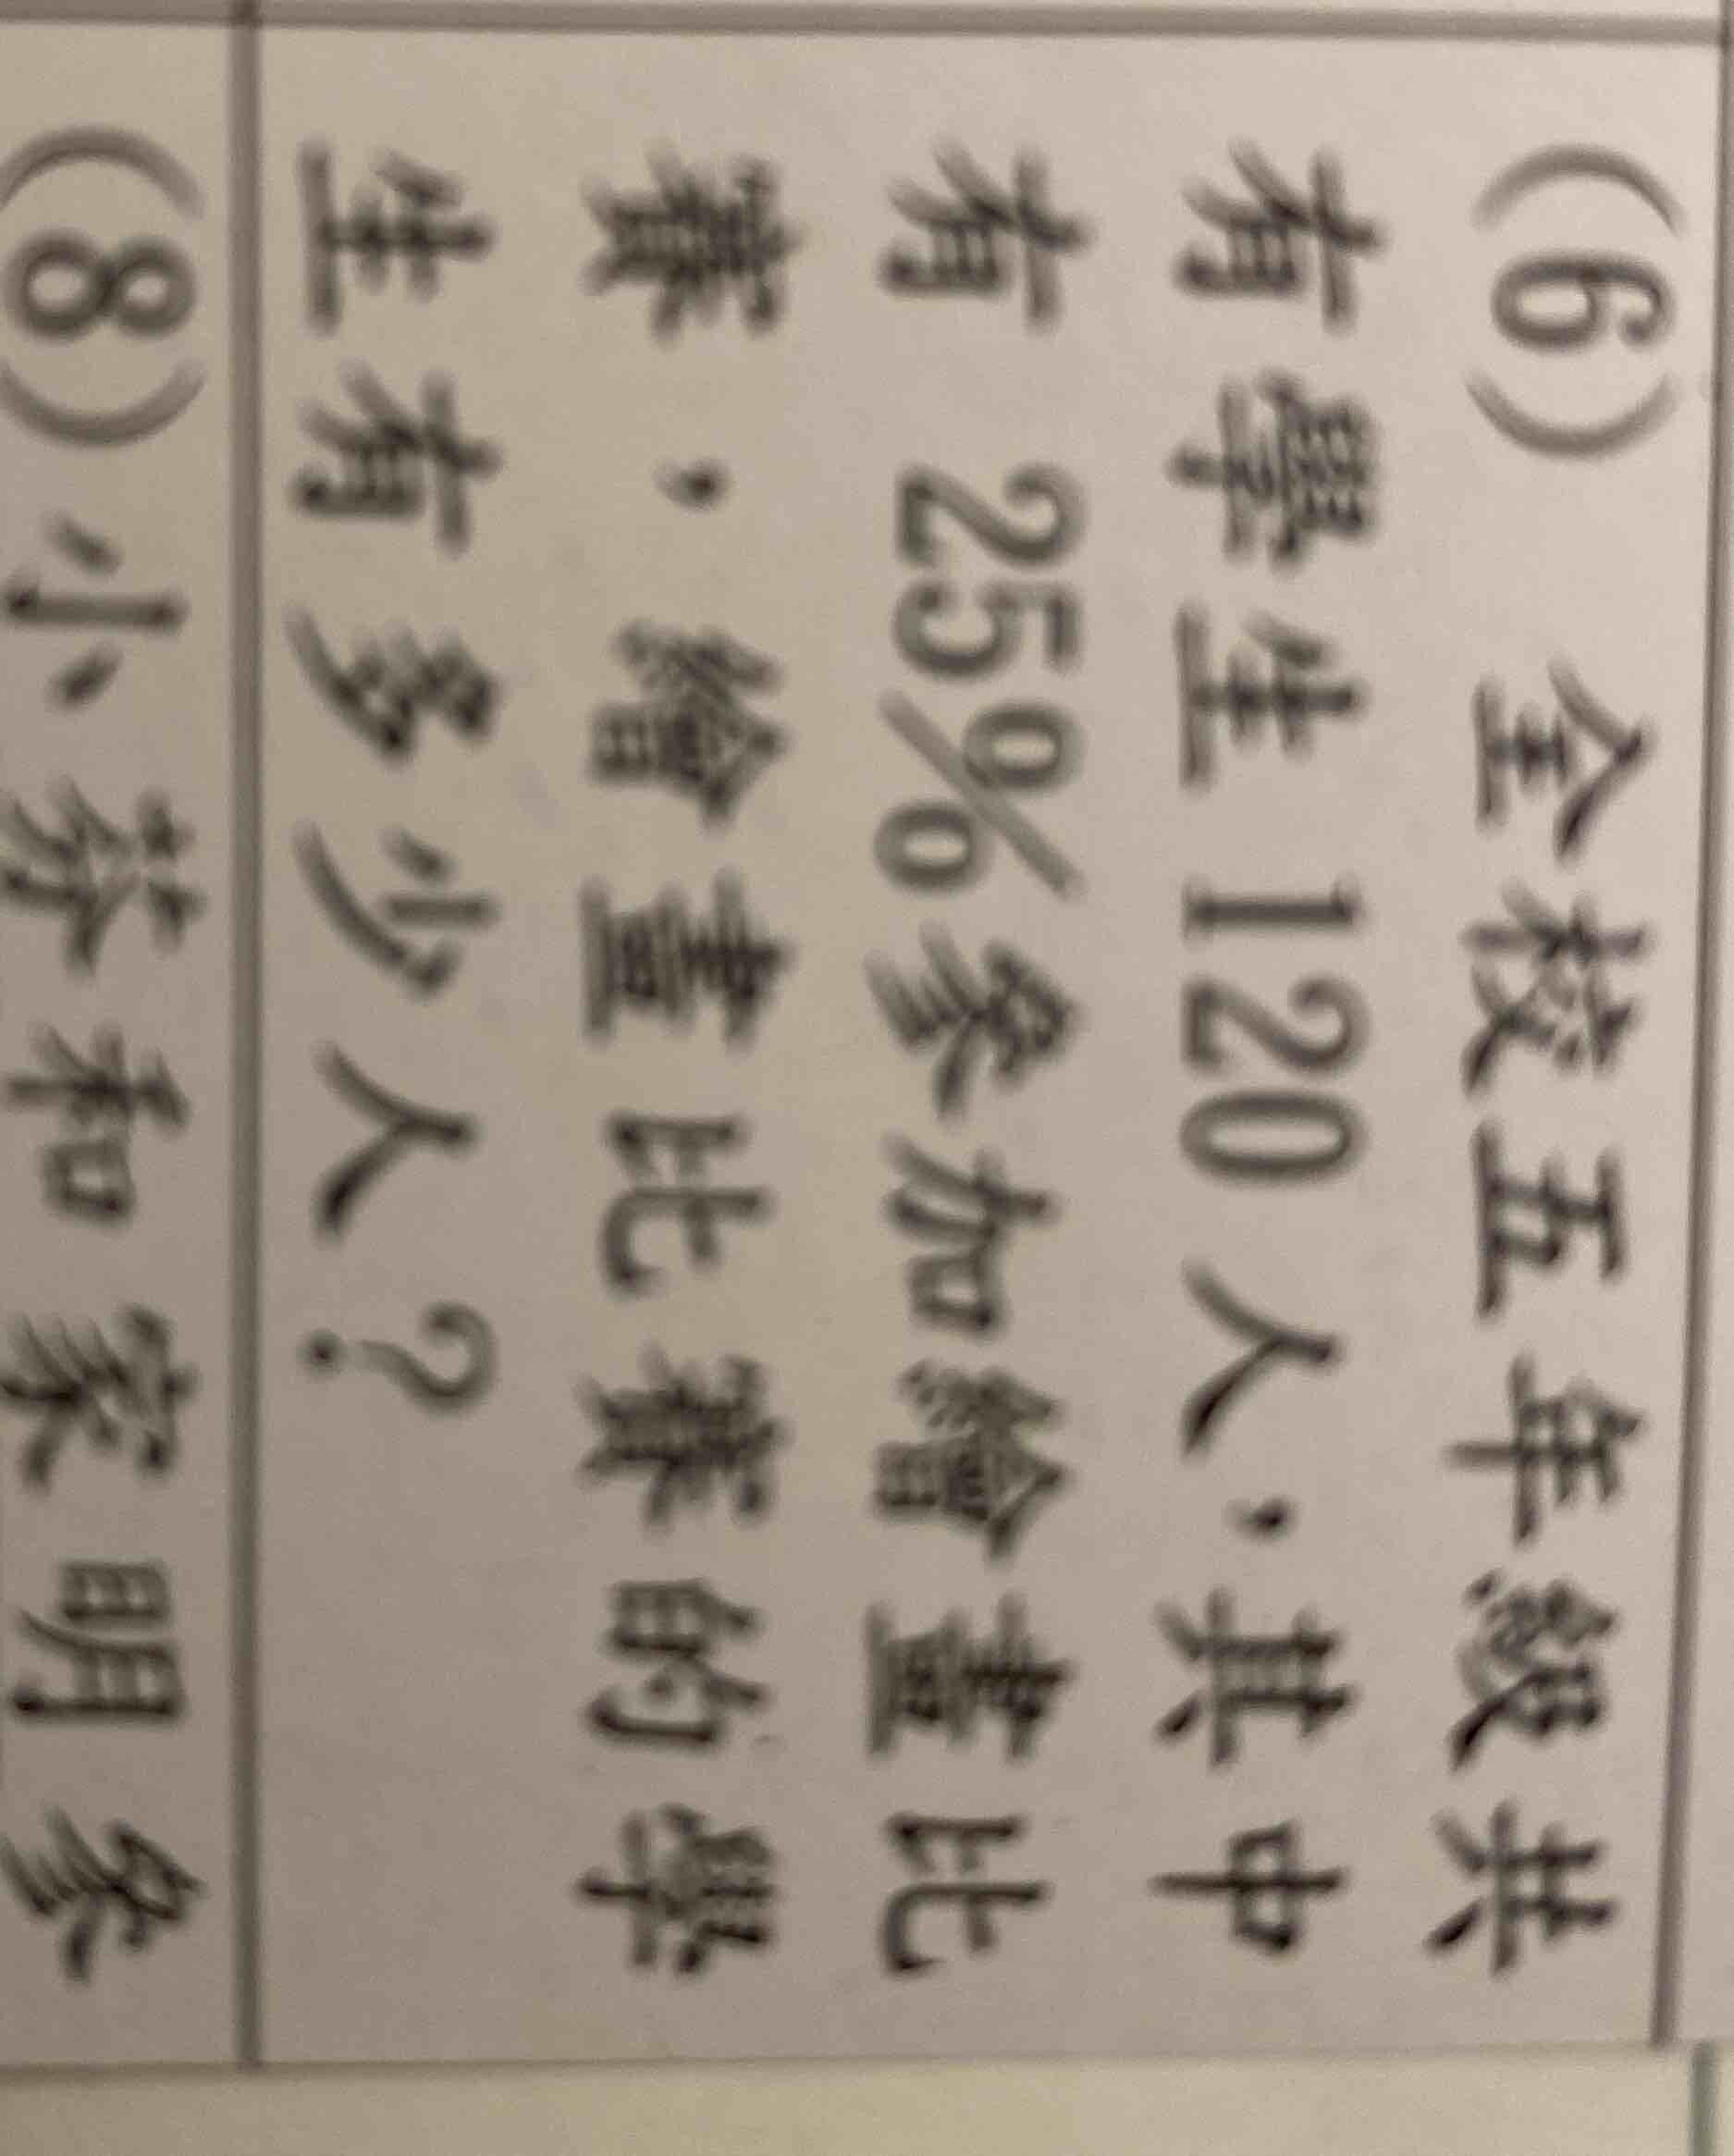 (6) 全校五年級共
有學生 120 人，其中
有 25%參加繪畫比
賽，繪畫比賽的學
生有多少人？
(8)小芬和家明參